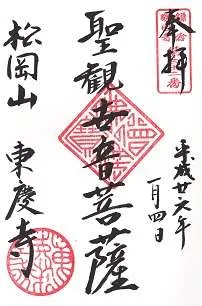 奉拝
平成廿六年
一月四日
聖観世音菩薩
松岡山
東慶寺